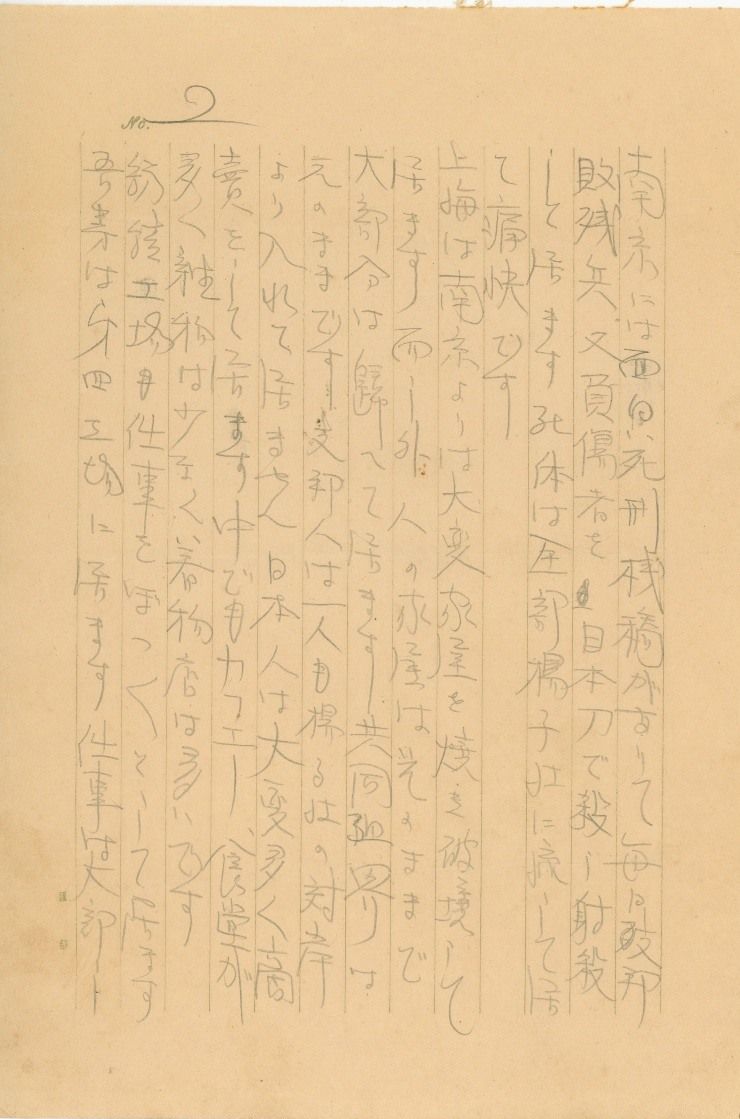 No. 2
南京には面白い死刑桟橋がありて毎日支那
敗残兵又負傷者を日本刀で殺し射殺
して居ます死体は全部揚子江に流して居
て痛快です
上海は南京よりは大変家屋を焼き破壊して
居ます而し外人の家屋は其のままで
大部分は歸へて居ます共同租界は
元のままです支那人は一人も揚子江の対岸
より入れて居ません日本人は大変多く商
賣をして居ます中でもカフエー、食堂が
多く雑物は少なく着物店は多いです
紡績工場も仕事をぼつ〱として居ます
吾来は第四工場に居ます仕事は大部ー